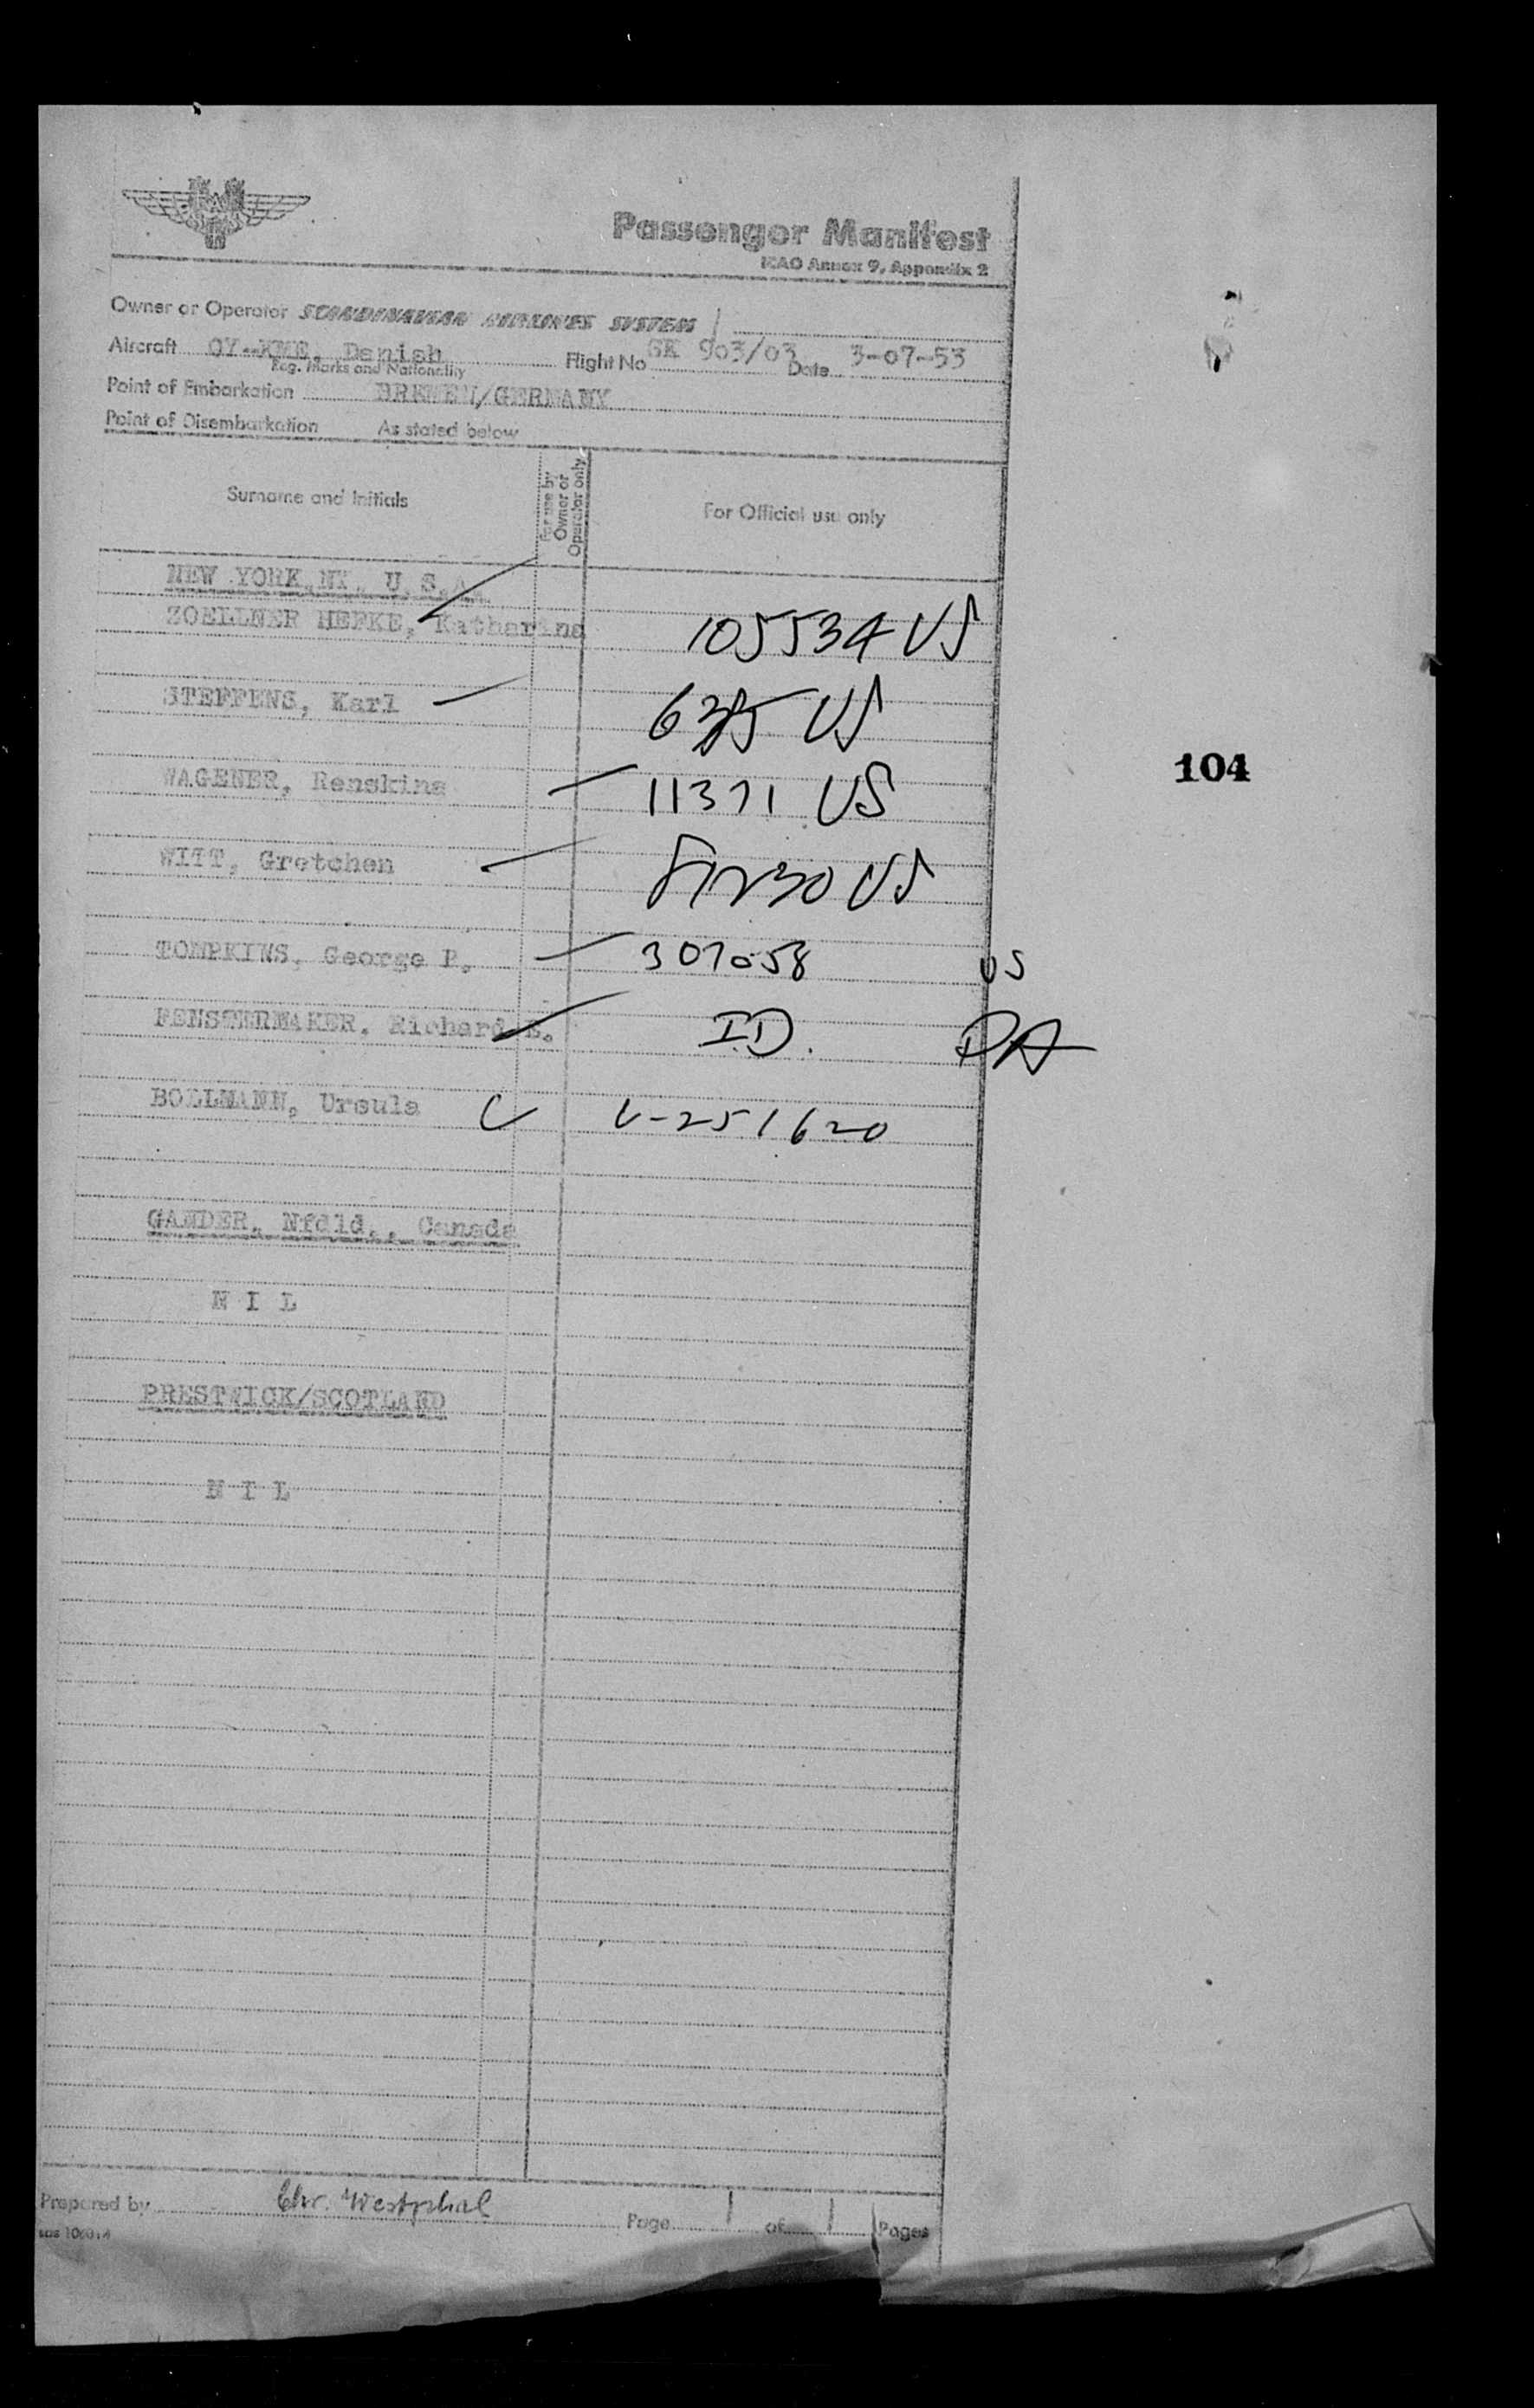 Passenger Manifest
ICAO Annex 9, Appendix 2
Owner or Operator SCANDINAVIAN AIRLINES SYSTEM
Aircraft OY-KME, Danish Flight No SK 903/03 Date 3-07-53
Reg. Marks and Nationality
Point of Embarkation BREMEN/GERMANY
Point of Disembarkation As stated below
Surname and Initials
For use by Owner or Operator only
For Official use only
NEW YORK,NY, U.S.A.
ZOELLNER HEFKE, Katharina 105534 US
STEFFENS, Karl US
WAGENER, Renskina 11371 US
104
WITT, Gretchen US
TOMPKINS, George P. 307058 US
FENSTERMAKER, Richard E. I.D. PA
BOLLMANN, Ursula V-251620
GANDER, Nfdld., Canada
N I L
PRESTWICK/SCOTLAND
N I L
Prepared by Chr. Westphal Page 1 of 1 Pages